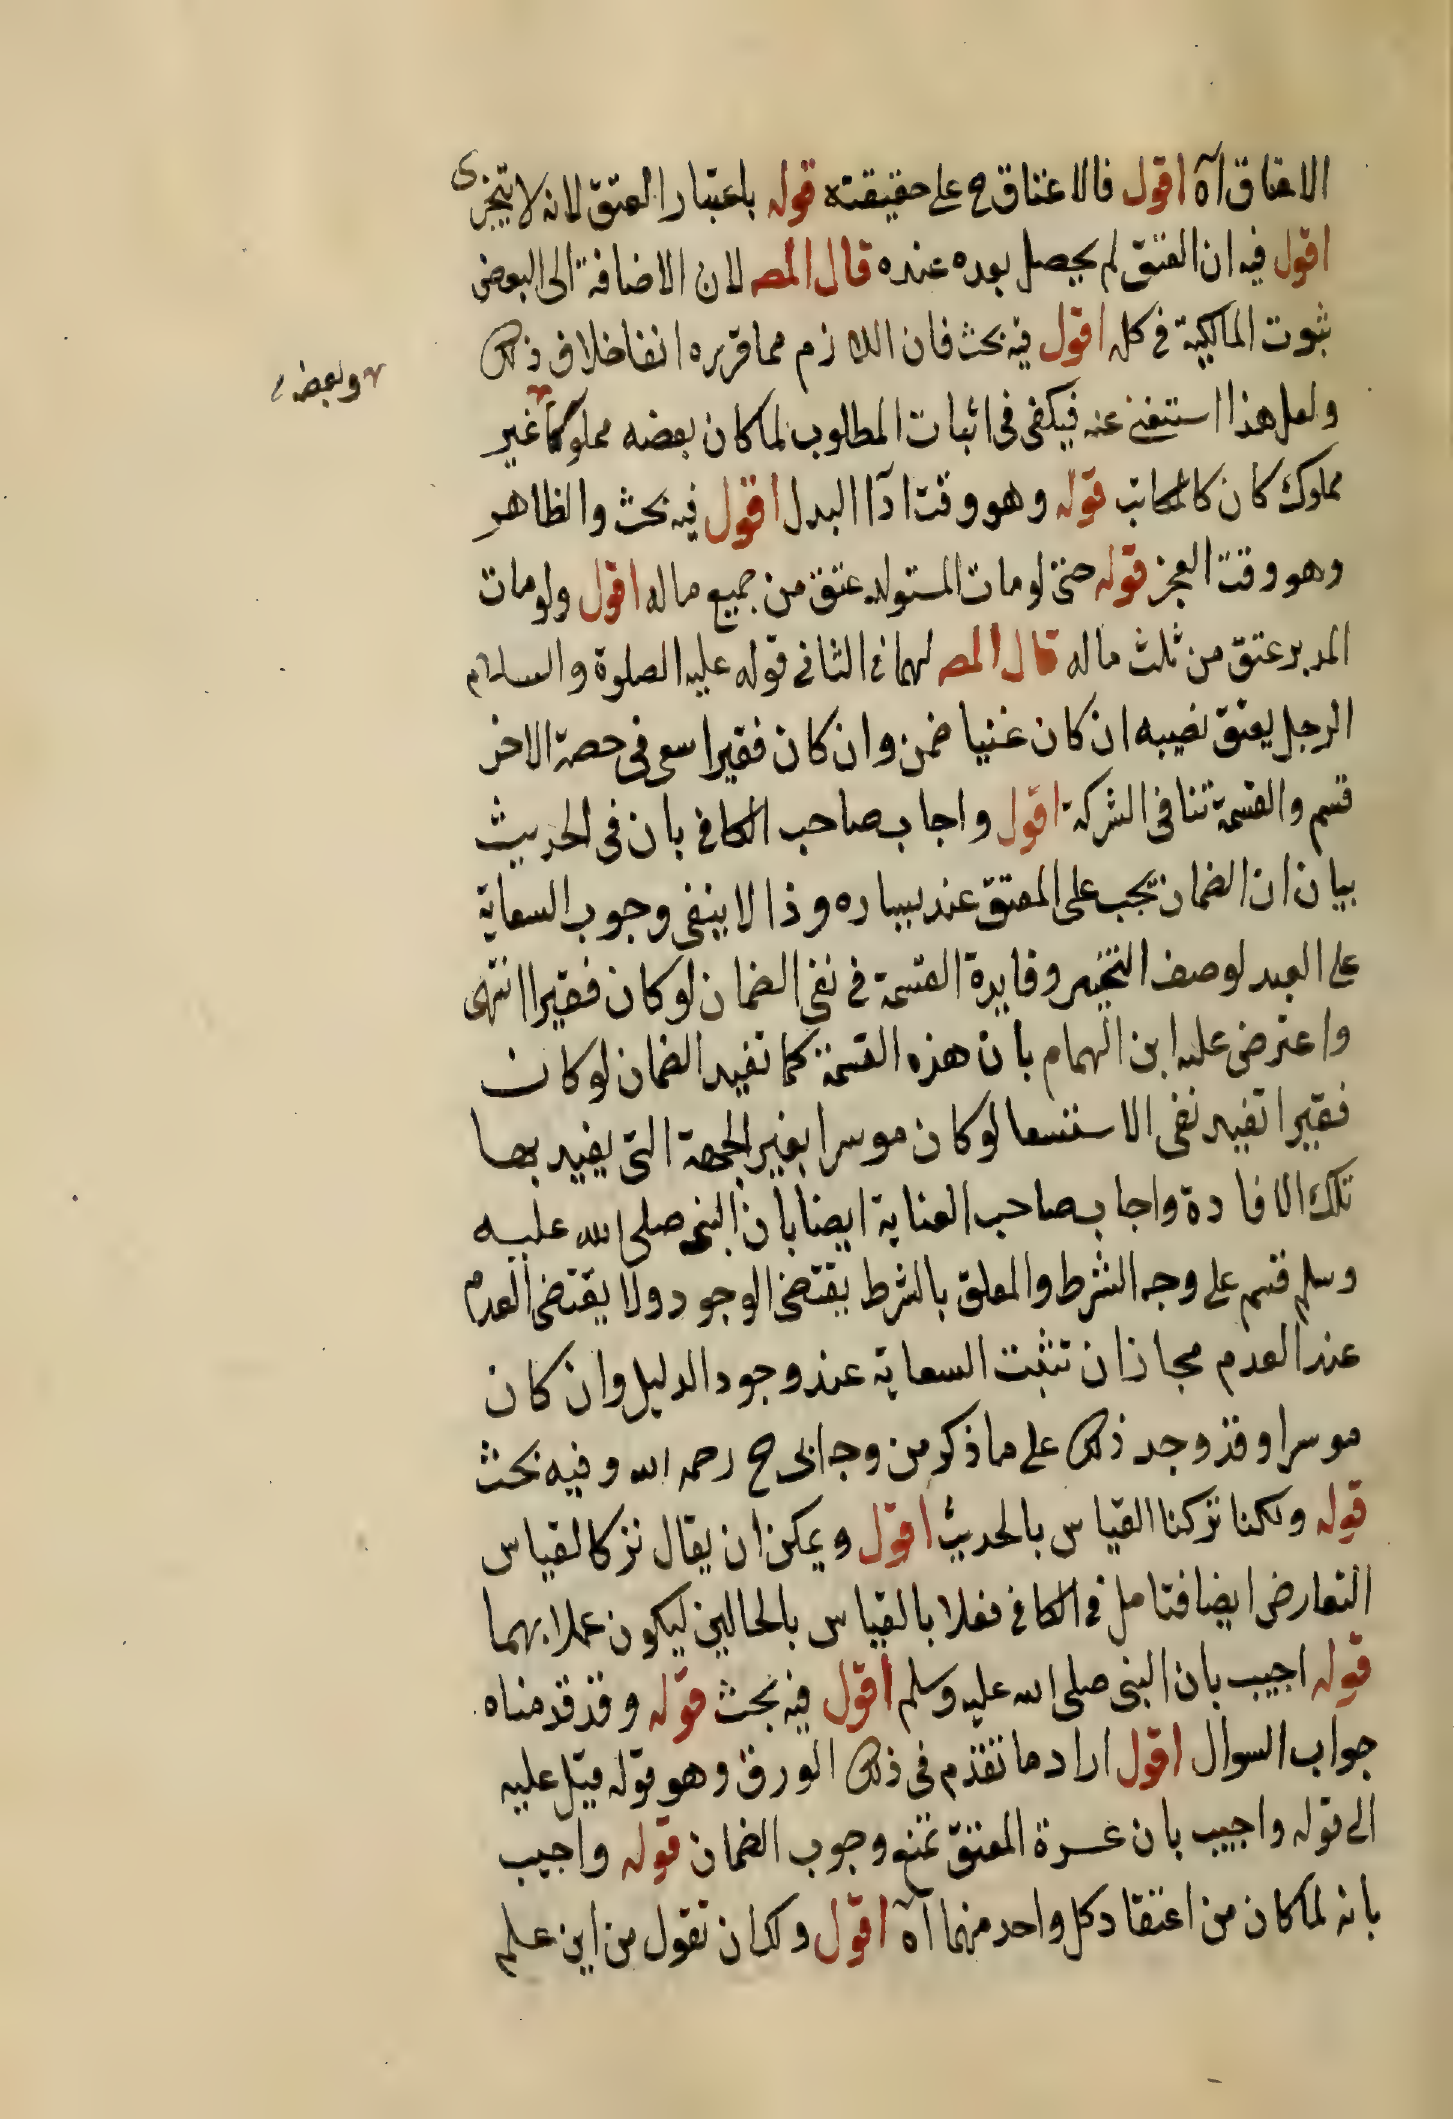 الاعتاق آه اقول فالاعتاق ح على حقيقته قوله باعتبار العتق لانه لا يتجزى
اقول فيه ان العتق لم يحصل بعده عنده قال المصـ لان الاضافة الى البعض
ثبوت المالكية فى كله اقول فيه بحث فان اللازم مما قرره انفا خلاف ذلك
ولعل هذا استتغنى عنه فيكفى فى اثبات المطلوب لما كان بعضه مملوكا غير
وبعضه
مملوك كان كالمكاتب قوله وهو وقت ادآ البدل اقول فيه بحث والظاهر
وهو وقت العجز قوله حتى لو مات المستولد عتق من جميع ماله اقول ولو مات
المدبر عتق من ثلث ماله قال المصـ لهما فى الثانى قوله عليه الصلوة والسلام
الرجل يعتق نصيبه ان كان غنيا ضمن وان كان فقيرا سعى فى حصة الاخر
قسم والقسمة تنافى الشركة اقول واجاب صاحب الكافى بان فى الحديث
بيان ان الضمان يجب على المعتق عند يساره وذا لا ينفى وجوب السعاية
على العبد لوصف التخيير وفايدة القسمة فى نفى الضمان لو كان فقيرا انتهى
واعترض عليه ابن الهمام بان هذه القسمة كما تفيد الضمان لو كان
فقيرا تفيد نفى الاستسعا لو كان موسرا بغير الجهة التى يفيد بها
تلك الافادة واجاب صاحب العناية ايضا بان النبى صلى الله عليه
وسلم قسم على وجه الشرط والمعلق بالشرط يقتضى الوجود ولا يقتضى العدم
عند العدم مجاز ان تثبت السعاية عند وجود الدليل وان كان
موسرا وقد وجد ذلك على ما ذكر من وجه ابى ح رحمه الله وفيه بحث
قوله ولكنا تركنا القياس بالحديث اقول ويمكن ان يقال نزكا لقياس
التعارض ايضا فتامل فى الكافى فعلا بالقياس بالحالين ليكون عملا بهما
قوله اجيب بان النبى صلى الله عليه وسلم اقول فيه بحث قوله وقد قدمناه
جواب السوال اقول اراد ما تقدم فى ذلك الورق وهو قوله قيل عليه
الى قوله واجيب بان عسرة المعتق تمنع وجوب الضمان قوله واجيب
بانه لما كان من اعتقاد كل واحد منهما آه اقول ولك ان تقول من اين علم